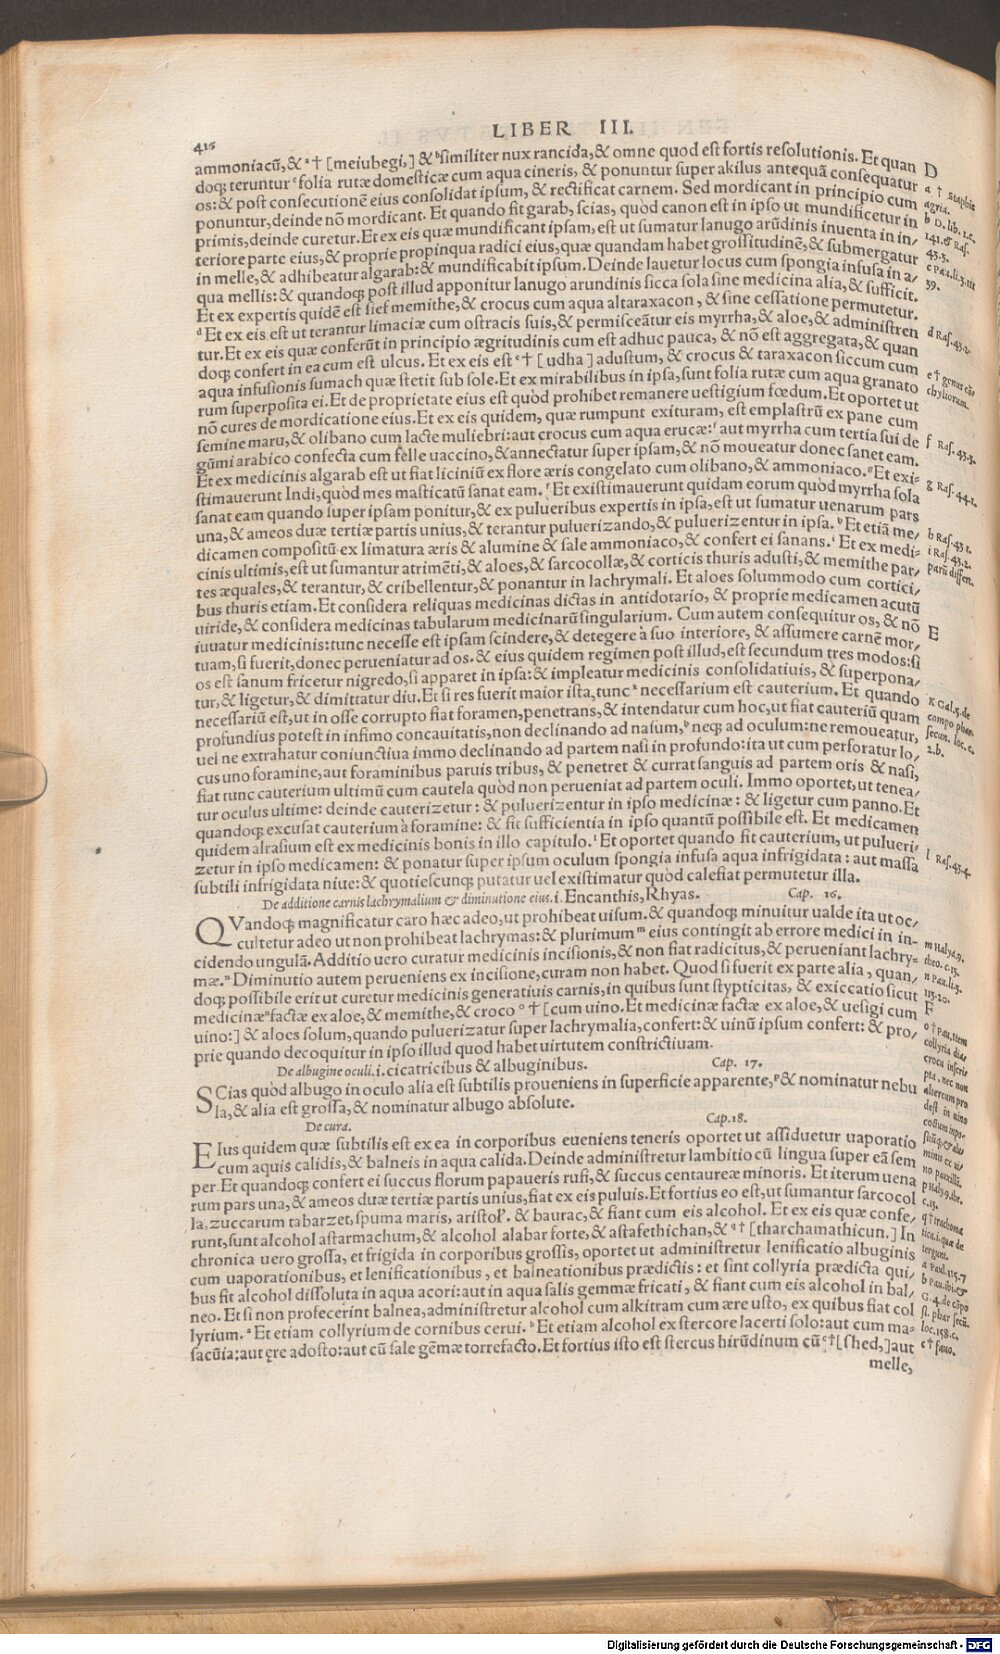 416
LIBER III.
ammoniacū, & ᵃ† [meiubegi,] & ᵇsimiliter nux rancida, & omne quod est fortis resolutionis. Et quan
doq; teruntur ᶜfolia rutæ domesticæ cum aqua cineris, & ponuntur super akilus antequā consequatur
os: & post consecutionē eius consolidat ipsum, & rectificat carnem. Sed mordicant in principio cum
ponuntur, deinde nō mordicant. Et quando fit garab, scias, quòd canon est in ipso ut mundificetur in
primis, deinde curetur. Et ex eis quæ mundificant ipsam, est ut sumatur lanugo arūdinis inuenta in in/
teriore parte eius, & proprie propinqua radici eius, quæ quandam habet grossitudinē, & submergatur
in melle, & adhibeatur algarab: & mundificabit ipsum. Deinde lauetur locus cum spongia infusa in a/
qua mellis: & quandoq; post illud apponitur lanugo arundinis sicca sola sine medicina alia, & sufficit.
Et ex expertis quidē est sief memithe, & crocus cum aqua altaraxacon, & sine cessatione permutetur.
ᵈ Et ex eis est ut terantur limaciæ cum ostracis suis, & permisceātur eis myrrha, & aloe, & administren
tur. Et ex eis quæ conferūt in principio ægritudinis cum est adhuc pauca, & nō est aggregata, & quan
doq; confert in ea cum est ulcus. Et ex eis est ᵉ† [udha] adustum, & crocus & taraxacon siccum cum
aqua infusionis sumach quæ stetit sub sole. Et ex mirabilibus in ipsa, sunt folia rutæ cum aqua granato
rum superposita ei. Et de proprietate eius est quòd prohibet remanere uestigium fœdum. Et oportet ut
nō cures de mordicatione eius. Et ex eis quidem, quæ rumpunt exituram, est emplastrū ex pane cum
semine maru, & olibano cum lacte muliebri: aut crocus cum aqua erucæ: ᶠ aut myrrha cum tertia sui de
gūmi arabico confecta cum felle uaccino, & annectatur super ipsam, & nō moueatur donec sanet eam.
Et ex medicinis algarab est ut fiat liciniū ex flore æris congelato cum olibano, & ammoniaco. ᵍ Et exi/
stimauerunt Indi, quòd mes masticatū sanat eam. ᶠ Et existimauerunt quidam eorum quòd myrrha sola
sanat eam quando super ipsam ponitur, & ex pulueribus expertis in ipsa, est ut sumatur uenarum pars
una, & ameos duæ tertiæ partis unius, & terantur puluerizando, & puluerizentur in ipsa. ʰ Et etiā me/
dicamen compositū ex limatura æris & alumine & sale ammoniaco, & confert ei sanans. ⁱ Et ex medi/
cinis ultimis, est ut sumantur atrimēti, & aloes, & sarcocollæ, & corticis thuris adusti, & memithe par/
tes æquales, & terantur, & cribellentur, & ponantur in lachrymali. Et aloes solummodo cum cortici/
bus thuris etiam. Et considera reliquas medicinas dictas in antidotario, & proprie medicamen acutū
uiride, & considera medicinas tabularum medicinarū singularium. Cum autem consequitur os, & nō
iuuatur medicinis: tunc necesse est ipsam scindere, & detegere à suo interiore, & assumere carnē mor/
tuam, si fuerit, donec perueniatur ad os. & eius quidem regimen post illud, est secundum tres modos: si
os est sanum fricetur nigredo, si apparet in ipsa: & impleatur medicinis consolidatiuis, & superpona/
tur, & ligetur, & dimittatur diu. Et si res fuerit maior ista, tunc ᵏ necessarium est cauterium. Et quando
necessariū est, ut in osse corrupto fiat foramen, penetrans, & intendatur cum hoc, ut fiat cauteriū quam
profundius potest in infimo concauitatis, non declinando ad nasum, ᵏ neq; ad oculum: ne remoueatur,
uel ne extrahatur coniunctiua immo declinando ad partem nasi in profundo: ita ut cum perforatur lo/
cus uno foramine, aut foraminibus paruis tribus, & penetret & currat sanguis ad partem oris & nasi,
fiat tunc cauterium ultimū cum cautela quòd non perueniat ad partem oculi. Immo oportet, ut tenea/
tur oculus ultime: deinde cauterizetur: & puluerizentur in ipso medicinæ: & ligetur cum panno. Et
quandoq; excusat cauterium à foramine: & fit sufficientia in ipso quantū possibile est. Et medicamen
quidem alrasium est ex medicinis bonis in illo capitulo. ˡ Et oportet quando fit cauterium, ut pulueri/
zetur in ipso medicamen: & ponatur super ipsum oculum spongia infusa aqua infrigidata: aut massa
subtili infrigidata niue: & quotiescunq; putatur uel existimatur quòd calefiat permutetur illa.
De additione carnis lachrymalium & diminutione eius. i. Encanthis, Rhyas. Cap. 16.
QVandoq; magnificatur caro hæc adeo, ut prohibeat uisum. & quandoq; minuitur ualde ita ut oc/
cultetur adeo ut non prohibeat lachrymas: & plurimum ᵐ eius contingit ab errore medici in in/
cidendo ungulā. Additio uero curatur medicinis incisionis, & non fiat radicitus, & perueniant lachry/
mæ. ⁿ Diminutio autem perueniens ex incisione, curam non habet. Quod si fuerit ex parte alia, quan/
doq; possibile erit ut curetur medicinis generatiuis carnis, in quibus sunt stypticitas, & exiccatio sicut
medicinæ ⁿ factæ ex aloe, & memithe, & croco ᵒ † [cum uino. Et medicinæ factæ ex aloe, & uesigi cum
uino:] & aloes solum, quando puluerizatur super lachrymalia, confert: & uinū ipsum confert: & pro/
prie quando decoquitur in ipso illud quod habet uirtutem constrictiuam.
De albugine oculi. i. cicatricibus & albuginibus. Cap. 17.
SCias quòd albugo in oculo alia est subtilis proueniens in superficie apparente, ᵖ & nominatur nebu
la, & alia est grossa, & nominatur albugo absolute.
De cura. Cap. 18.
EIus quidem quæ subtilis est ex ea in corporibus eueniens teneris oportet ut assiduetur uaporatio
cum aquis calidis, & balneis in aqua calida. Deinde administretur lambitio cū lingua super eā sem
per. Et quandoq; confert ei succus florum papaueris rufi, & succus centaureæ minoris. Et iterum uena
rum pars una, & ameos duæ tertiæ partis unius, fiat ex eis puluis. Et fortius eo est, ut sumantur sarcocol
la, zuccarum tabarzet, spuma maris, aristoł. & baurac, & fiant cum eis alcohol. Et ex eis quæ confe/
runt, sunt alcohol astarmachum, & alcohol alabar forte, & astafethichan, & q† [tharchamathicun.] In
chronica uero grossa, et frigida in corporibus grossis, oportet ut administretur lenificatio albuginis
cum uaporationibus, et lenificationibus, et balneationibus prædictis: et sint collyria prædicta qui/
bus fit alcohol dissoluta in aqua acori: aut in aqua salis gemmæ fricati, & fiant cum eis alcohol in bal/
neo. Et si non profecerint balnea, administretur alcohol cum alkitram cum ære usto, ex quibus fiat col
lyrium. ᵃ Et etiam collyrium de cornibus cerui. ᵇ Et etiam alcohol ex stercore lacerti solo: aut cum ma/
sacūia: aut ęre adosto: aut cū sale gēmæ torrefacto. Et fortius isto est stercus hirūdinum cū ᶜ† [shed,] aut
melle,
D
a † Staphis
agria.
b D. lib. 1. c.
141. & Ras.
43.3.
c Pau. li. 3. tit
39.
d Ras. 43.2.
e † genus
chyliorum.
f Ras. 43.3.
g Ras. 44.1.
h Ras. 43 1.
i Ras. 43.2.
parū differt.
E
K Gal. 5. de
compo phar.
secun. loc. c.
2.b.
l Ras. 43.4.
m Haly. 9.
theo. c. 15.
n Pau. li. 3.
F
o † Pau. item
collyria dia
crocu inscrip
pta, nec non
dest in uino
p Haly. 9. the.
c. 13.
q † trachoma
tica. i. quæ de
tergent.
a Paul. 115.7
b Pau. ibi. &
G. 4. de cōpo
st. phar secū.
loc. 158. c.
c † fauo.
Digitalisierung gefördert durch die Deutsche Forschungsgemeinschaft - DFG